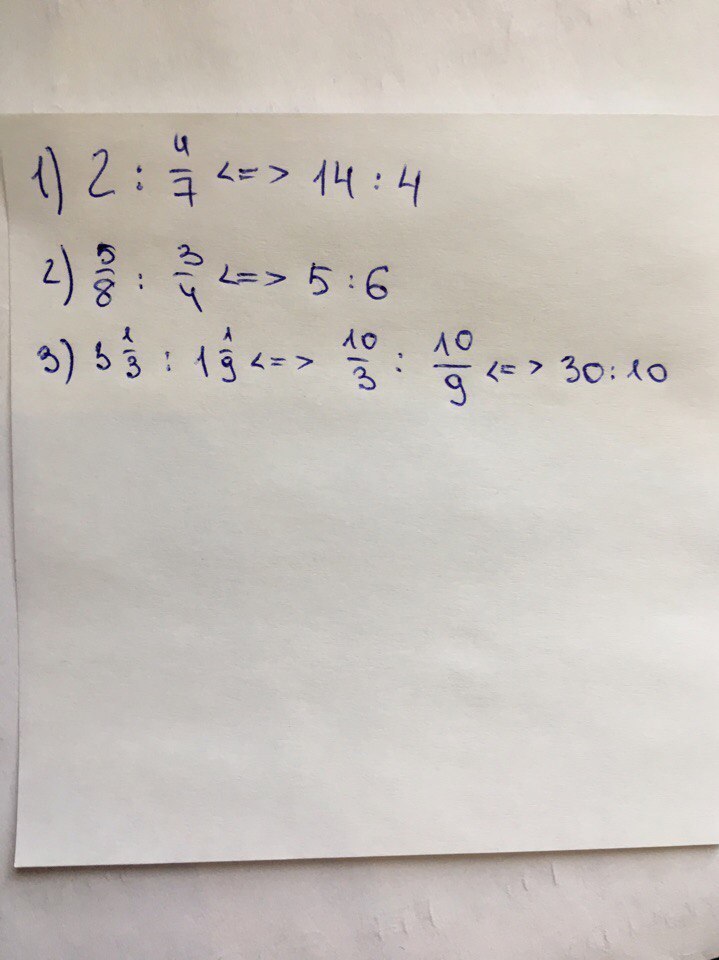 1) 2 : 4/7 <=> 14 : 4
2) 5/8 : 3/4 <=> 5 : 6
3) 3 1/3 : 1 1/9 <=> 10/3 : 10/9 <=> 30 : 10